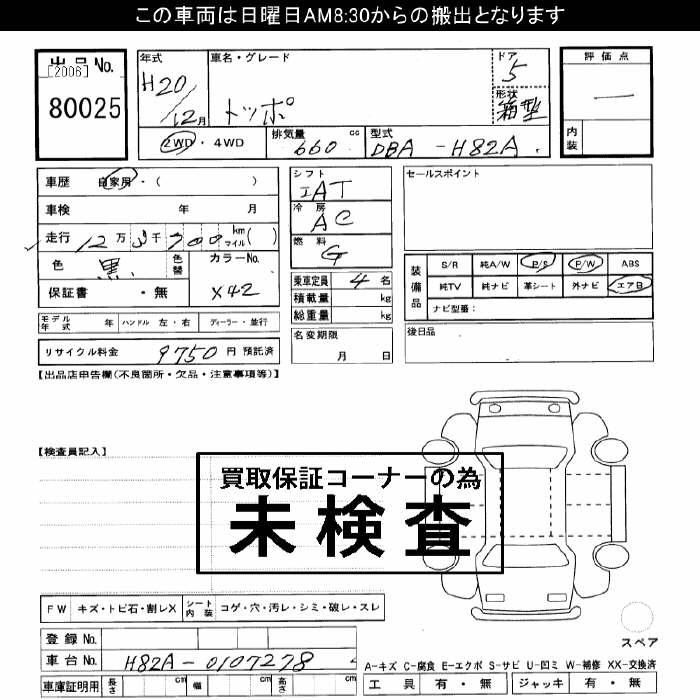 この車両は日曜日AM8:30からの搬出となります
出品No.
[2006]
80025
年式
H20/12月
車名・グレード
トッポ
ドア
5
形状
箱型
評価点
—
内装
2WD・4WD
排気量 660 cc
型式 DBA-H82A
車歴 自家用・( )
車検 年 月
走行 12万3千700 km マイル( )
色 黒
色替
カラーNo.
X42
保証書 ・無
モデル年式 年 ハンドル 左・右 ディーラー・並行
リサイクル料金 9750 円 預託済
シフト
IAT
冷房
AC
燃料
G
乗車定員 4 名
積載量 kg
総重量 kg
名変期限
月 日
セールスポイント
装備品
S/R 純A/W P/S P/W ABS
純TV 純ナビ 革シート 外ナビ エアB
ナビ型番:
後日品
【出品店申告欄(不良箇所・欠品・注意事項等)】
【検査員記入】
買取保証コーナーの為
未検査
FW キズ・トビ石・割レX シート内装 コゲ・穴・汚レ・シミ・破レ・スレ
登録No.
車台No. H82A-0107278
車庫証明用 長さ cm 幅 cm 高さ cm
スペア
A-キズ C-腐食 E-エクボ S-サビ U-凹ミ W-補修 XX-交換済
工具 有・無 ジャッキ 有・無